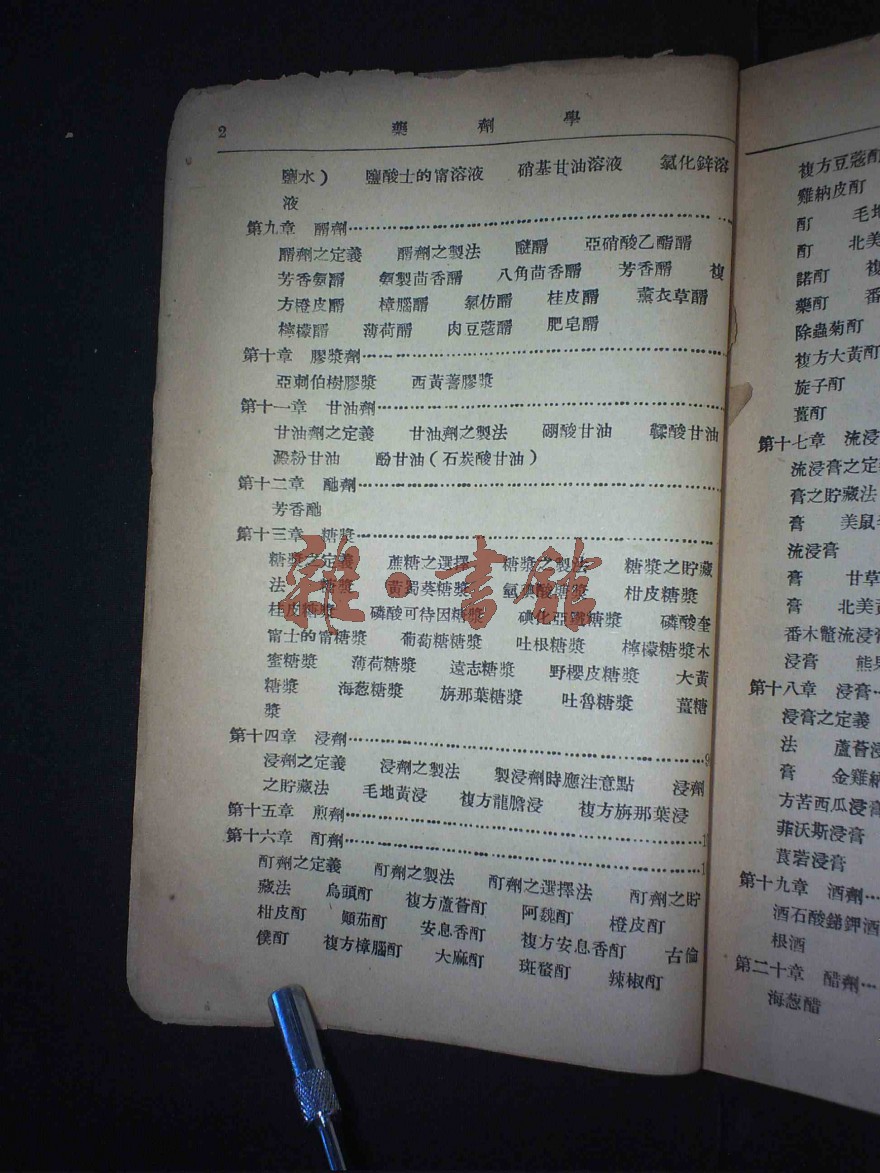 2 藥劑學
鹽水） 鹽酸士的甯溶液 硝基甘油溶液 氯化鋅溶
液
第九章 醑劑
醑劑之定義 醑劑之製法 醚醑 亞硝酸乙酯醑
芳香氨醑 氨製茴香醑 八角茴香醑 芳香醑 複
方橙皮醑 樟腦醑 氯仿醑 桂皮醑 薰衣草醑
檸檬醑 薄荷醑 肉豆蔻醑 肥皂醑
第十章 膠漿劑
亞剌伯樹膠漿 西黃蓍膠漿
第十一章 甘油劑
甘油劑之定義 甘油劑之製法 硼酸甘油 鞣酸甘油
澱粉甘油 酚甘油（石炭酸甘油）
第十二章 酏劑
芳香酏
第十三章 糖漿
糖漿之定義 蔗糖之選擇 糖漿之製法 糖漿之貯藏
法 糖漿 黃蜀葵糖漿 氫碘酸糖漿 柑皮糖漿
桂皮糖漿 磷酸可待因糖漿 碘化亞鐵糖漿 磷酸奎
甯士的甯糖漿 葡萄糖糖漿 吐根糖漿 檸檬糖漿木
蜜糖漿 薄荷糖漿 遠志糖漿 野櫻皮糖漿 大黃
糖漿 海葱糖漿 旃那葉糖漿 吐魯糖漿 薑糖
漿
第十四章 浸劑 9
浸劑之定義 浸劑之製法 製浸劑時應注意點 浸劑
之貯藏法 毛地黃浸 複方龍膽浸 複方旃那葉浸
第十五章 煎劑 1
第十六章 酊劑 1
酊劑之定義 酊劑之製法 酊劑之選擇法 酊劑之貯
藏法 烏頭酊 複方蘆薈酊 阿魏酊 橙皮酊
柑皮酊 顛茄酊 安息香酊 複方安息香酊 古倫
僕酊 複方樟腦酊 大麻酊 斑蝥酊 辣椒酊
複方豆蔻酊
雞納皮酊
酊 毛地
酊 北美
諾酊 複
藥酊 番
除蟲菊酊
複方大黃酊
旋子酊
薑酊
第十七章 流浸
流浸膏之定
膏之貯藏法
膏 美鼠
流浸膏
膏 甘草
膏 北美
番木鼈流浸膏
浸膏 熊果
第十八章 浸膏
浸膏之定義
法 蘆薈浸
膏 金雞納
方苦西瓜浸膏
菲沃斯浸膏
莨菪浸膏
第十九章 酒劑
酒石酸銻鉀酒
根酒
第二十章 醋劑
海葱醋
雜·書館